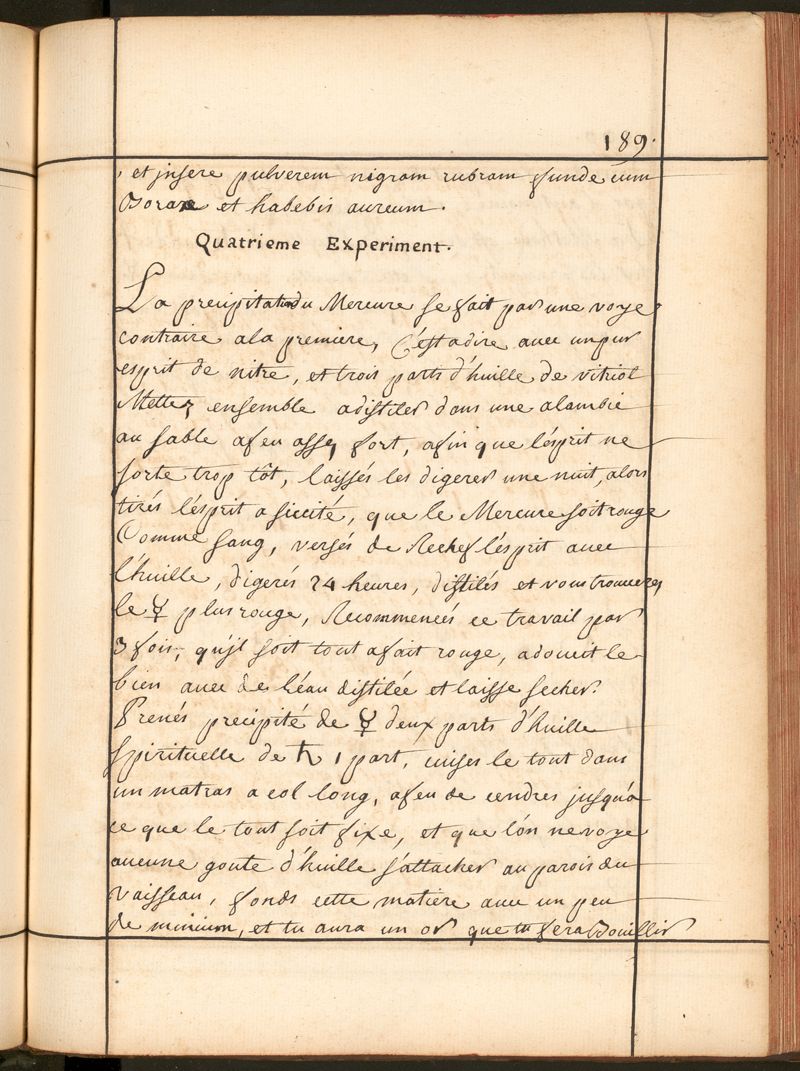 189.
et jnsere pulverem nigram rubram funde cum
Borax et habebis aureum.
Quatrieme Experiment.
La precipitation du Mercure se fait par une voye
contraire ala premiere, C'est adire avec un pur
esprit de nitre, et trois parts d'huille de vitriol
Mettez ensemble a distiler dans une alambic
au sable a feu assez fort, afin que l'esprit ne
sorte trop tôt, laissés les digerer une nuit, alors
tirés l'esprit a siccité, que le Mercure soit rouge
Comme sang, versés de Rechef l'esprit avec
l'huille, digerés 24 heures, distilés et vous trouverez
le ☿ plus rouge, Recommencés ce travail par
3 fois, qu'jl soit tout a fait rouge, adoucit le
bien avec de l'éau distilée et laisse secher.
Prenés precipité de ☿ deux parts d'huille
spirituelle de ♄ 1 part, cuises le tout dans
un matras a col long, a feu de cendres jusqu'a
ce que le tout soit fixe, et que l'ón ne voye
aucune goute d'huille s'attacher au parois du
vaisseau, fonds cette matiere avec un peu
de minium, et tu aura un or que tu fera Bouillir